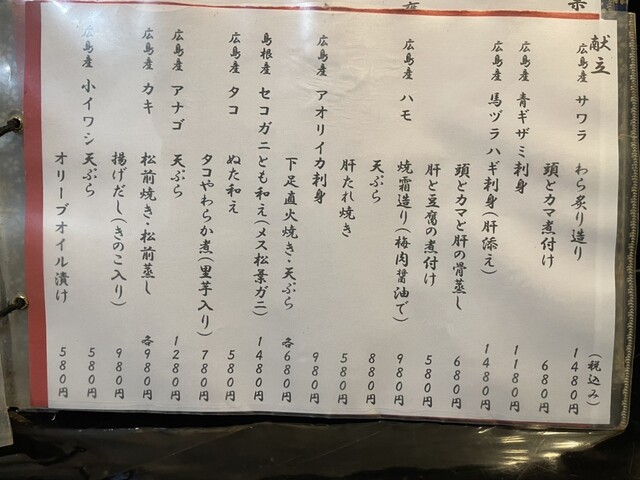 献立
(税込み)
広島産 サワラ わら炙り造り 1480円
頭とカマ煮付け 680円
広島産 青ギザミ刺身 1180円
広島産 馬ヅラハギ刺身(肝添え) 1480円
頭とカマと肝の骨蒸し 680円
肝と豆腐の煮付け 580円
広島産 ハモ 焼霜造り(梅肉醤油で) 980円
天ぷら 880円
肝たれ焼き 580円
広島産 アオリイカ刺身 980円
下足直火焼き・天ぷら 各680円
島根産 セコガニとも和え(メス松葉ガニ) 1480円
広島産 タコ ぬた和え 580円
タコやわらか煮(里芋入り) 780円
広島産 アナゴ 天ぷら 1280円
広島産 カキ 松前焼き・松前蒸し 各980円
揚げだし(きのこ入り) 980円
広島産 小イワシ 天ぷら 580円
オリーブオイル漬け 580円